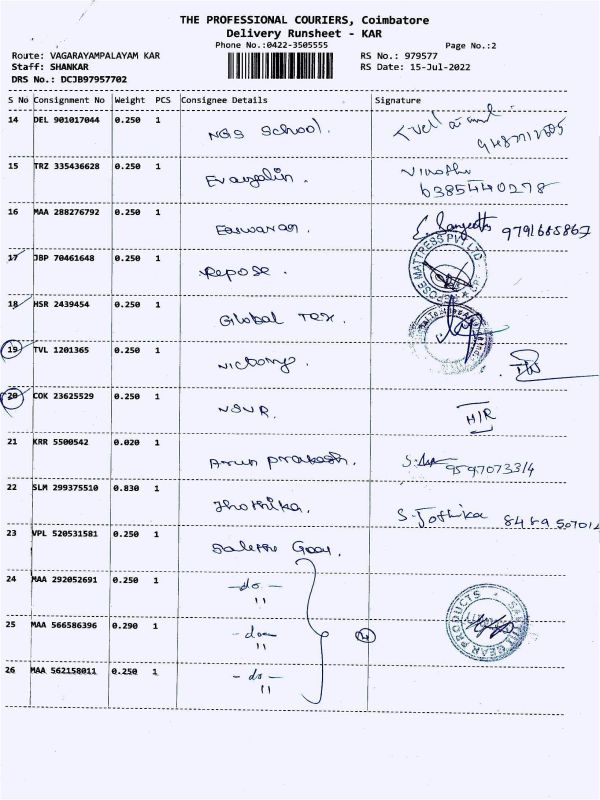 THE PROFESSIONAL COURIERS, Coimbatore
Delivery Runsheet - KAR
Phone No.:0422-3505555 Page No.:2
Route: VAGARAYAMPALAYAM KAR RS No.: 979577
Staff: SHANKAR RS Date: 15-Jul-2022
DRS No.: DCJB97957702
S No Consignment No Weight PCS Consignee Details Signature
14 DEL 901017044 0.250 1 NGS School.
15 TRZ 335436628 0.250 1 Evangalin. Vinothu
6385440278
16 MAA 288276792 0.250 1 Easwaran. S. Sangeetha 9791665867
17 JBP 70461648 0.250 1 Repose. REPOSE MATTRESS PVT LTD
18 HSR 2439454 0.250 1 Global Tex.
19 TVL 1201365 0.250 1 Victory.
20 COK 23625529 0.250 1 NSNR. H/R
21 KRR 5500542 0.020 1 Arun prakash. 9597073314
22 SLM 299375510 0.830 1 Jhothika. S. Jothika
23 VPL 520531581 0.250 1
24 MAA 292052691 0.250 1 -do-
"
25 MAA 566586396 0.290 1 -do- 4
"
26 MAA 562158011 0.250 1 -do-
"
GEAR PRODUCTS